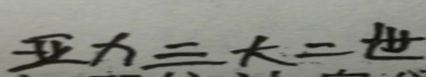 亚力三大二世